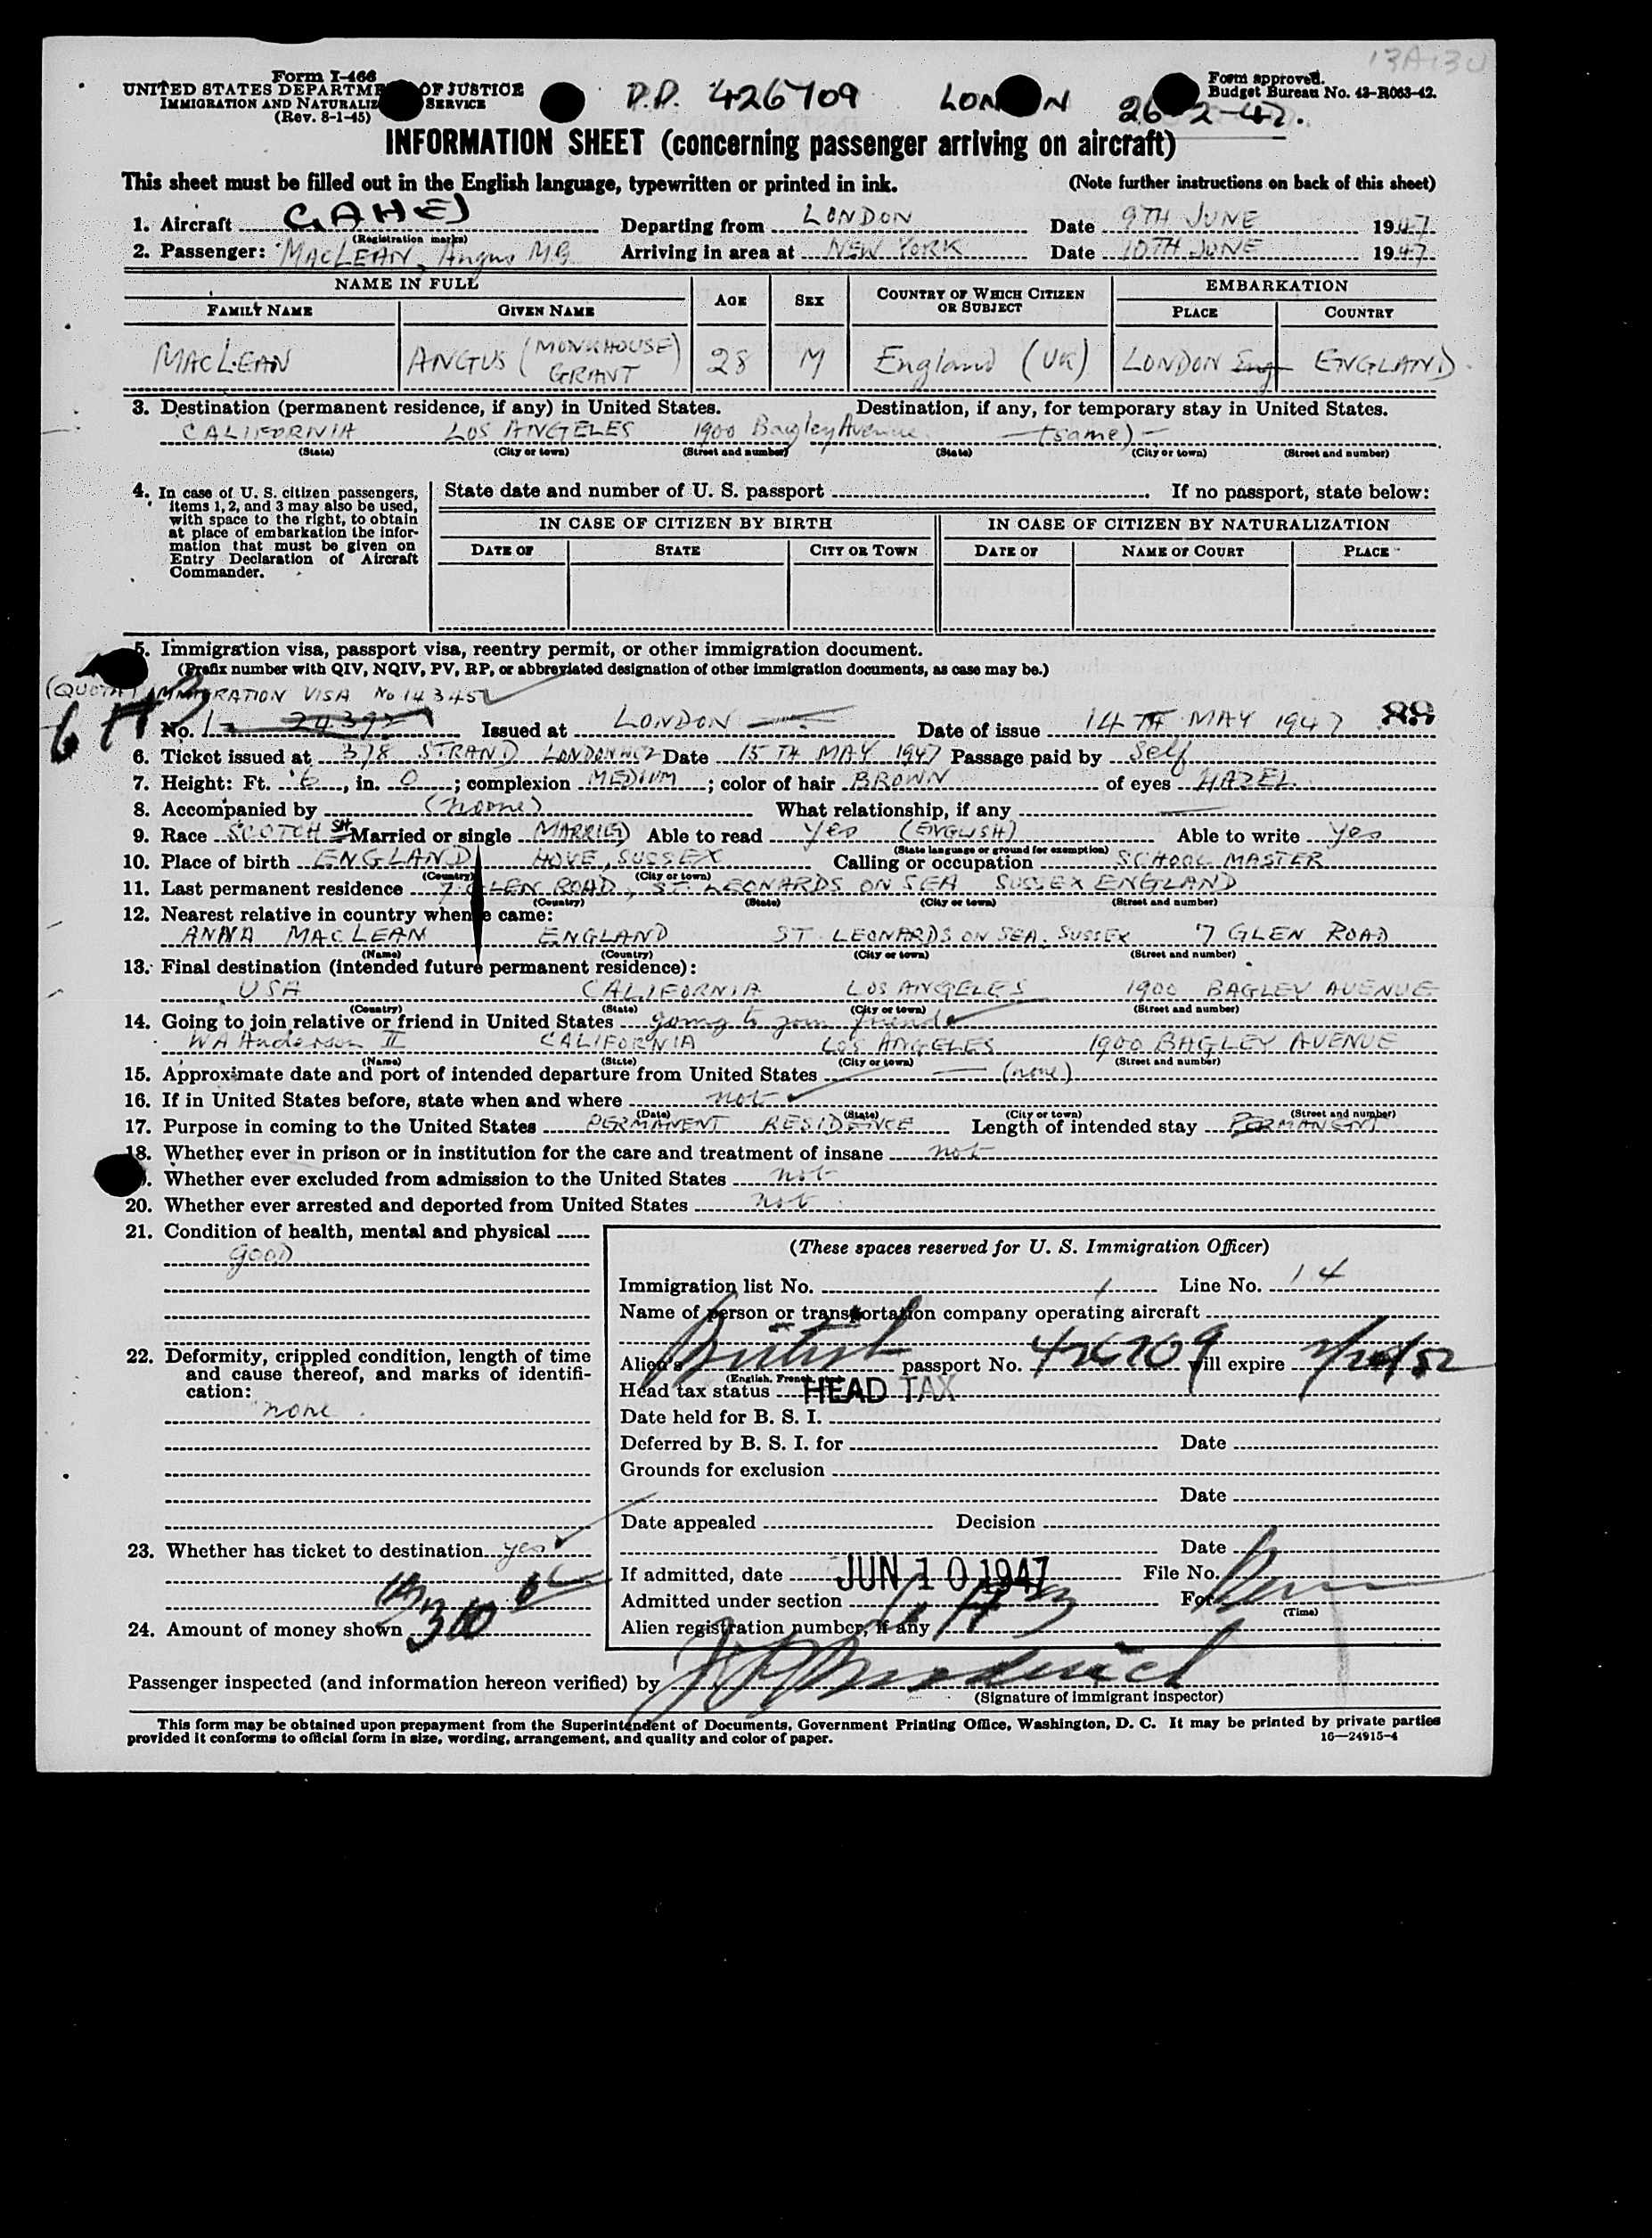 13A134
Form I-466
UNITED STATES DEPARTME OF JUSTICE
IMMIGRATION AND NATURALIZ SERVICE
(Rev. 8-1-45)
P.P. 426709 LON N 26-2-47.
Form approved.
Budget Bureau No. 43-R063-42.
INFORMATION SHEET (concerning passenger arriving on aircraft)
This sheet must be filled out in the English language, typewritten or printed in ink. (Note further instructions on back of this sheet)
1. Aircraft GAHEJ Departing from LONDON Date 9TH JUNE 1947
(Registration marks)
2. Passenger: MACLEAN, Angus M.G. Arriving in area at NEW YORK Date 10TH JUNE 1947
NAME IN FULL AGE SEX COUNTRY OF WHICH CITIZEN OR SUBJECT EMBARKATION
FAMILY NAME GIVEN NAME PLACE COUNTRY
MACLEAN ANGUS (MONKHOUSE) GRANT 28 M England (UK) LONDON Eng ENGLAND
3. Destination (permanent residence, if any) in United States. Destination, if any, for temporary stay in United States.
CALIFORNIA LOS ANGELES 1900 Bagley Avenue. - (same) -
(State) (City or town) (Street and number) (State) (City or town) (Street and number)
4. In case of U. S. citizen passengers, items 1, 2, and 3 may also be used, with space to the right, to obtain at place of embarkation the information that must be given on Entry Declaration of Aircraft Commander.
State date and number of U. S. passport If no passport, state below:
IN CASE OF CITIZEN BY BIRTH IN CASE OF CITIZEN BY NATURALIZATION
DATE OF STATE CITY OR TOWN DATE OF NAME OF COURT PLACE
5. Immigration visa, passport visa, reentry permit, or other immigration document.
(Prefix number with QIV, NQIV, PV, RP, or abbreviated designation of other immigration documents, as case may be.)
(QUOTA) IMMIGRATION VISA No 14345
No. Issued at LONDON Date of issue 14TH MAY 1947 88
6. Ticket issued at 378 STRAND LONDON WC2 Date 15TH MAY 1947 Passage paid by Self
7. Height: Ft. 6, in. 0; complexion MEDIUM; color of hair BROWN of eyes HAZEL
8. Accompanied by (none) What relationship, if any
9. Race SCOTCH SH Married or single MARRIED Able to read Yes (ENGLISH) Able to write Yes
(State language or ground for exemption)
10. Place of birth ENGLAND HOVE, SUSSEX Calling or occupation SCHOOL MASTER
(Country) (City or town)
11. Last permanent residence 7 GLEN ROAD, ST. LEONARDS ON SEA SUSSEX ENGLAND
(Country) (State) (City or town) (Street and number)
12. Nearest relative in country whence came:
ANNA MACLEAN ENGLAND ST. LEONARDS ON SEA, SUSSEX 7 GLEN ROAD
(Name) (Country) (City or town) (Street and number)
13. Final destination (intended future permanent residence):
USA CALIFORNIA LOS ANGELES 1900 BAGLEY AVENUE
(Country) (State) (City or town) (Street and number)
14. Going to join relative or friend in United States going to join friend
WA Anderson II CALIFORNIA LOS ANGELES 1900 BAGLEY AVENUE
(Name) (State) (City or town) (Street and number)
15. Approximate date and port of intended departure from United States (none)
16. If in United States before, state when and where not
(Date) (State) (City or town) (Street and number)
17. Purpose in coming to the United States PERMANENT RESIDENCE Length of intended stay PERMANENT
18. Whether ever in prison or in institution for the care and treatment of insane not
. Whether ever excluded from admission to the United States not
20. Whether ever arrested and deported from United States not
21. Condition of health, mental and physical
GOOD
22. Deformity, crippled condition, length of time and cause thereof, and marks of identification:
none.
23. Whether has ticket to destination yes
24. Amount of money shown
(These spaces reserved for U. S. Immigration Officer)
Immigration list No. 1 Line No. 14
Name of person or transportation company operating aircraft
Alien's British passport No. 426709 will expire
(English, French, etc.)
Head tax status HEAD TAX
Date held for B. S. I.
Deferred by B. S. I. for Date
Grounds for exclusion
Date
Date appealed Decision
Date
If admitted, date JUN 10 1947 File No.
Admitted under section For
(Time)
Alien registration number, if any
Passenger inspected (and information hereon verified) by
(Signature of immigrant inspector)
This form may be obtained upon prepayment from the Superintendent of Documents, Government Printing Office, Washington, D. C. It may be printed by private parties
provided it conforms to official form in size, wording, arrangement, and quality and color of paper. 16—24915-4